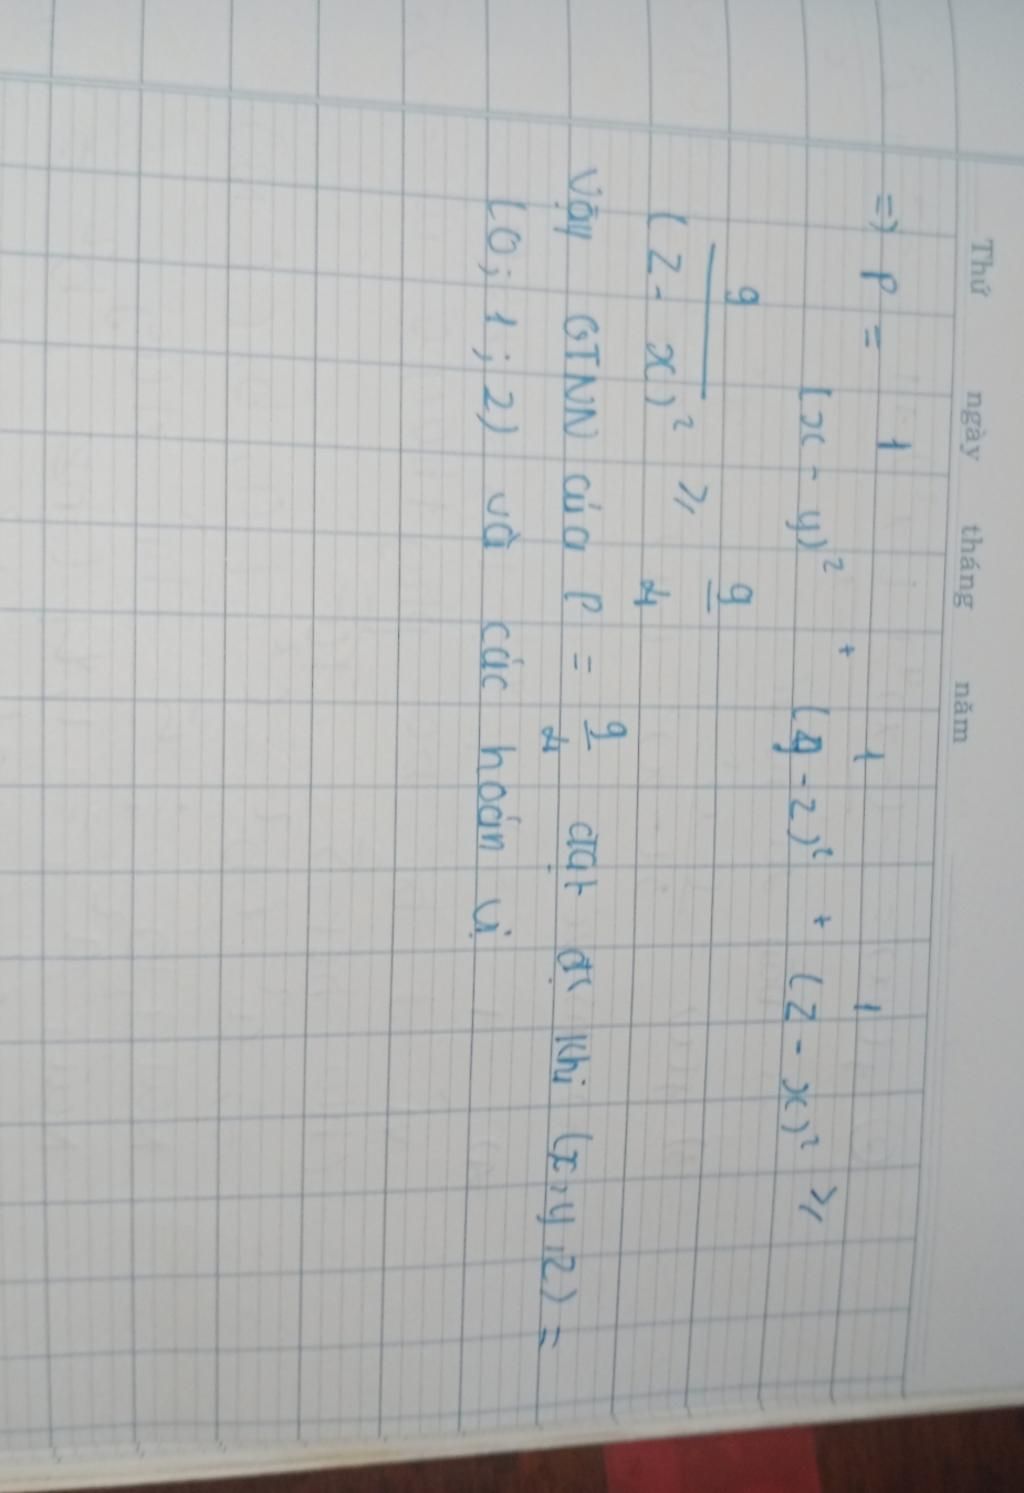 Thứ ngày tháng năm
=) P = 1/(x - y)² + 1/(y - z)² + 1/(z - x)² ≥
9/(z - x)² ≥ 9/4
Vậy GTNN của P = 9/4 đạt đc khi (x, y, z) =
(0; 1; 2) và các hoán vị